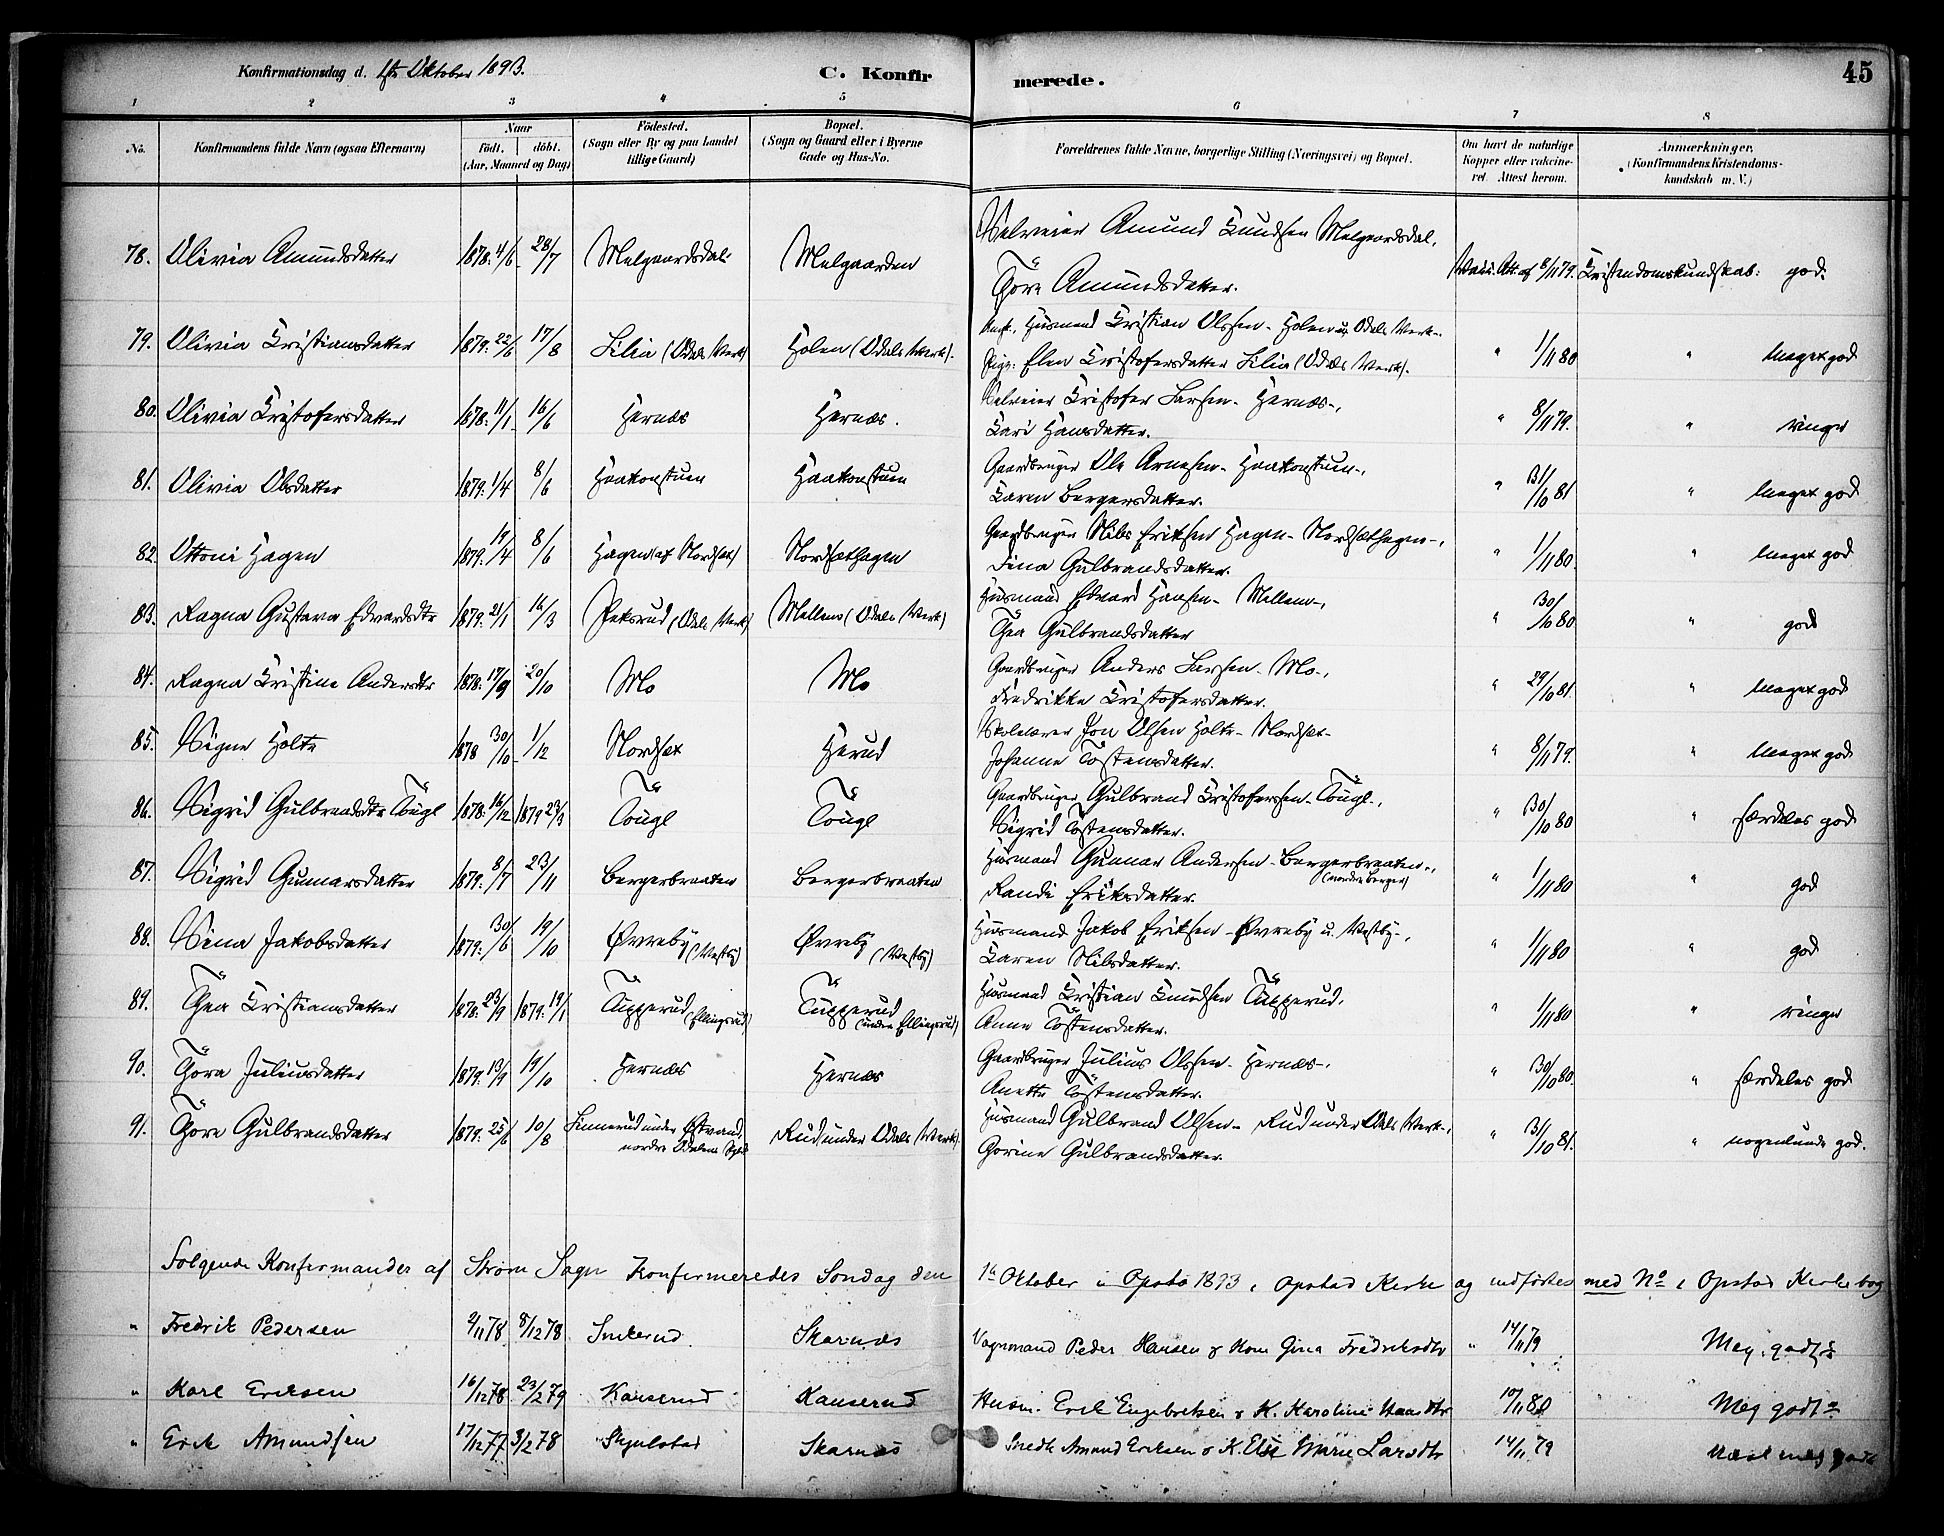 Konfirmationsdag d. 1ste Oktober 1893. C. Konfirmerede. 45
1 2 3 4 5 6 7 8
No. Konfirmandens fulde Navn (ogsaa Efternavn) Naar Födt. döbt. (Aar, Maaned og Dag) Födested. (Sogn eller By og paa Landet tillige Gaard) Bopæl. (Sogn og Gaard eller i Byerne Gade og Hus-No. Forældrenes fulde Navne, borgerlige Stilling (Næringsvei) og Bopæl. Om havt de naturlige Kopper eller vakcineret. Attest herom. Anmærkninger. (Konfirmandens Kristendomskundskab m. V.)
78. Olivia Amundsdatter 1878. 4/6 28/7 Melgaardsdal. Melgaarden Selveier Amund Knudsen Melgaardsdal,
Tore Amundsdatter. Vaki. Att. af 8/11 79. Kristendomskundskab: god.
79. Olivia Kristiansdatter 1879. 22/6 17/8 Lilia (Odals Verk) Holen (Odals Verk). Husmand Kristian Olssen - Holen u. Odals Verk -.
Pige. Elen Kristofersdatter Lilia (Odals Verk). " 1/11 80 " meget god
80. Olivia Kristofersdatter 1878. 11/1 16/6 Hernæs Hernæs. Selveier Kristofer Larsen - Hernæs -,
Kari Hansdatter. " 8/11 79. " ringe
81. Olivia Olsdatter 1879. 1/4 8/6 Haakonstuen Haakonstuen Gaardbruger Ole Arnesen - Haakonstuen -,
Karen Bergersdatter. " 31/10 81 " meget god
82. Ottoni Hagen 1879. 19/4 8/6 Hagen (af Nordset) Nordsethagen Gaardbruger Nils Eriksen Hagen - Nordsethagen -,
Dina Gulbrandsdatter. " 1/11 80. " meget god
83. Ragna Gustava Edvardsdtr 1879. 21/1 16/3 Peksrud (Odals Verk) Mellem (Odals Verk) Husmand Edvard Hansen - Mellem -,
Tea Gulbrandsdatter " 30/10 80 " god
84. Ragna Kristine Andersdtr 1878. 17/9 20/10 Mo Mo Gaardbruger Anders Larsen - Mo -,
Fredrikke Kristofersdatter. " 29/10 81. " meget god
85. Signe Holte 1878 30/10 1/12 Nordset Herud Skolelærer Jon Olsen Holte - Nordset -
Johanne Tostensdatter. " 8/11 79. " meget god
86. Sigrid Gulbrandsdtr Tougl 1878. 16/12 1879 23/3 Tougl Tougl Gaardbruger Gulbrand Kristofersen - Tougl -,
Sigrid Tostensdatter. " 30/10 80 " særdeles god
87. Sigrid Gunnarsdatter 1879. 8/7 23/11 Bergerbraaten Bergerbraaten Husmand Gunnar Andersen - Bergerbraaten -,
(nordre Berger)
Randi Eriksdatter. " 1/11 80 " god
88. Sina Jakobsdatter 1879. 30/6 19/10 Øvreby (Vestby) Øvreby (Vestby) Husmand Jakob Eriksen - Øvreby u. Vestby -,
Karen Nilsdatter. " 1/11 80 " god
89. Tea Kristiansdatter 1878. 23/9 1879. 19/1 Tupperud (Ellingsrud) Tupperud (under Ellingsrud) Husmand Kristian Knudsen Tupperud,
Anne Tostensdatter. " 1/11 80 " ringe
90. Tora Juliusdatter 1879. 13/9 19/10 Hernæs Hernæs Gaardbruger Julius Olssen - Hernæs -,
Anette Tostensdatter. " 30/10 80. " særdeles god
91. Tora Gulbrandsdatter 1879. 25/6 10/8 Linnerud under Østvand, nordre Odalens Rud under Odals Verk). Husmand Gulbrand Olsen - Rud under Odals Verk -,
Gorine Gulbrandsdatter. " 31/10 81. " nogenlunde god.
Følgende Konfirmander af Strøm Sogn Konfirmeredes Søndag den 1ste Oktober 1893 i Opstad Kirke og indførtes med No i Opstad Kirkebog
" Fredrik Pedersen 9/11 78 8/12 78 Skarnæs Vognmand Peder Hansen & Kone Gina Fredriksdtr " 14/11 79 Meg. godt
" Karl Eriksen 16/12 78. 23/2 79 Kanserud Kanserud Husm. Erik Engebretsen & K. Karoline 10/11 80 Meg godt
" Erik Amundsen 17/12 77 3/2 78 Skjulstad Skarnæs Snedk Amund Eriksen & K. Else Marie Larsdtr 14/11 79